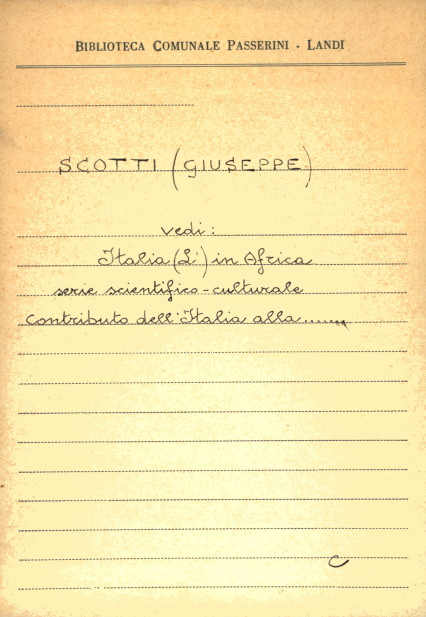 BIBLIOTECA COMUNALE PASSERINI - LANDI
SCOTTI (GIUSEPPE)
vedi:
Italia (L') in Africa
serie scientifico-culturale
contributo dell'Italia alla.......
C